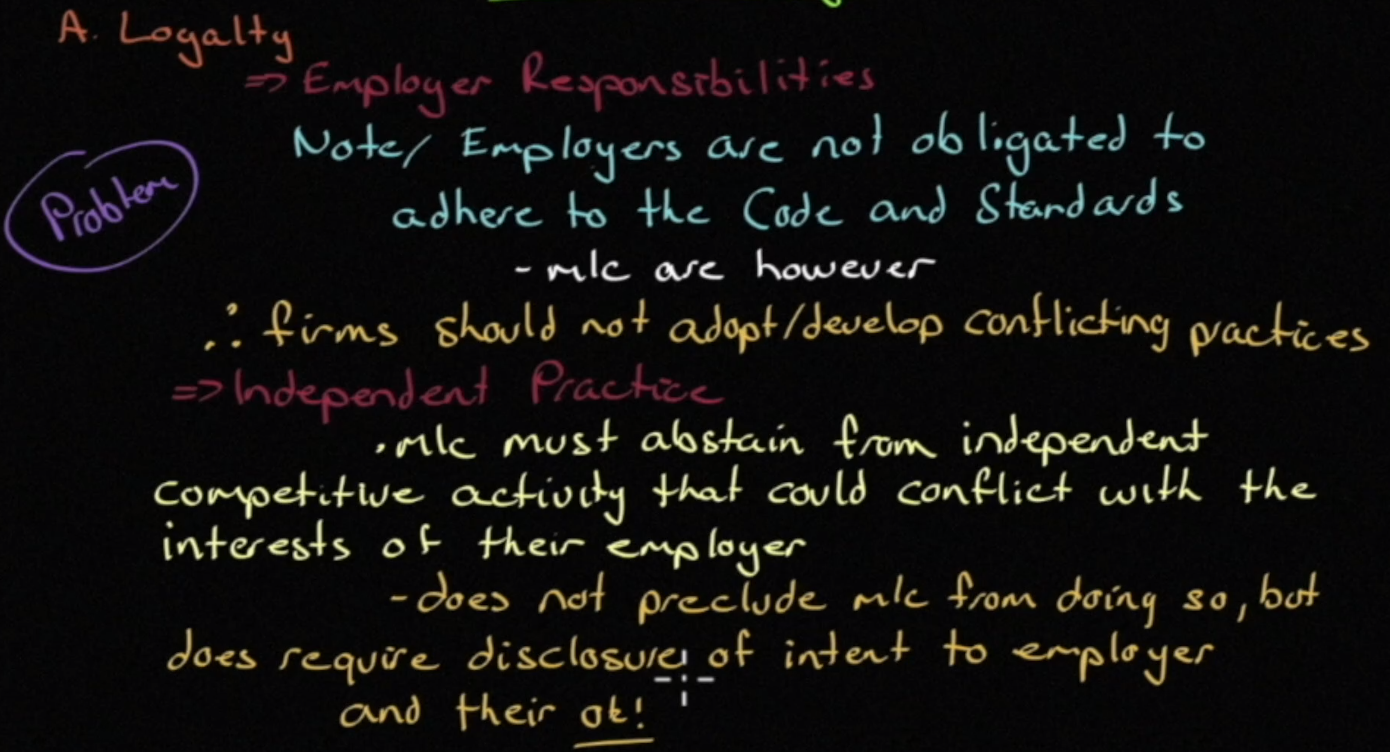 A. Loyalty
=> Employer Responsibilities
Note/ Employers are not obligated to
adhere to the Code and Standards
Problem
- m/c are however
∴ firms should not adopt/develop conflicting practices
=> Independent Practice
. m/c must abstain from independent
competitive activity that could conflict with the
interests of their employer
- does not preclude m/c from doing so, but
does require disclosure of intent to employer
and their ok!